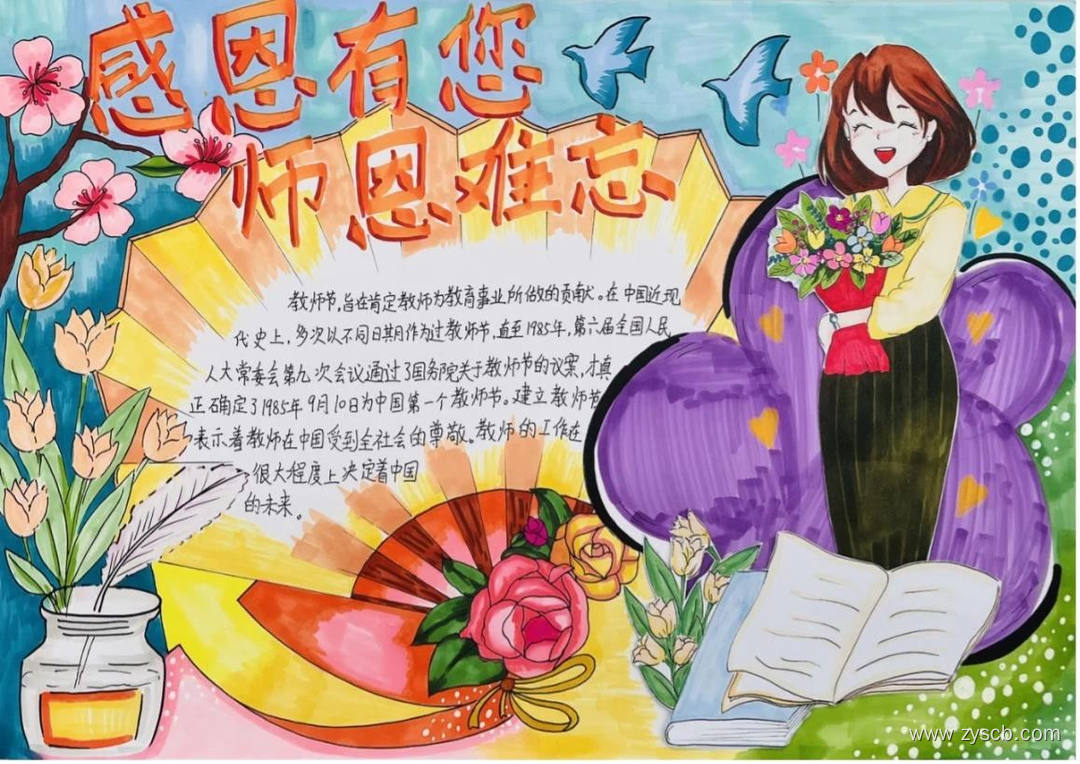 感恩有您
师恩难忘
教师节,旨在肯定教师为教育事业所做的贡献。在中国近现
代史上,多次以不同日期月作为过教师节,直至1985年,第六届全国人民
人大常委会第九次会议通过了国务院关于教师节的议案,才真
正确定了1985年9月10日为中国第一个教师节。建立教师节
表示着教师在中国受到全社会的尊敬。教师的工作在
很大程度上决定着中国
的未来。
www.zyscb.com